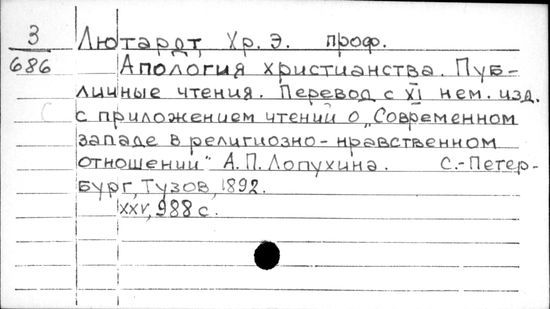 З
686
Лютардт, Хр. Э. проф.
Апология христианства. Пуб-
личные чтения. Перевод с XI нем. изд.
с приложением чтений о „Современном
западе в религиозно-нравственном
отношении" А.П. Лопухина. С.-Петер-
бург, Тузов, 1892.
XXV, 988 с.